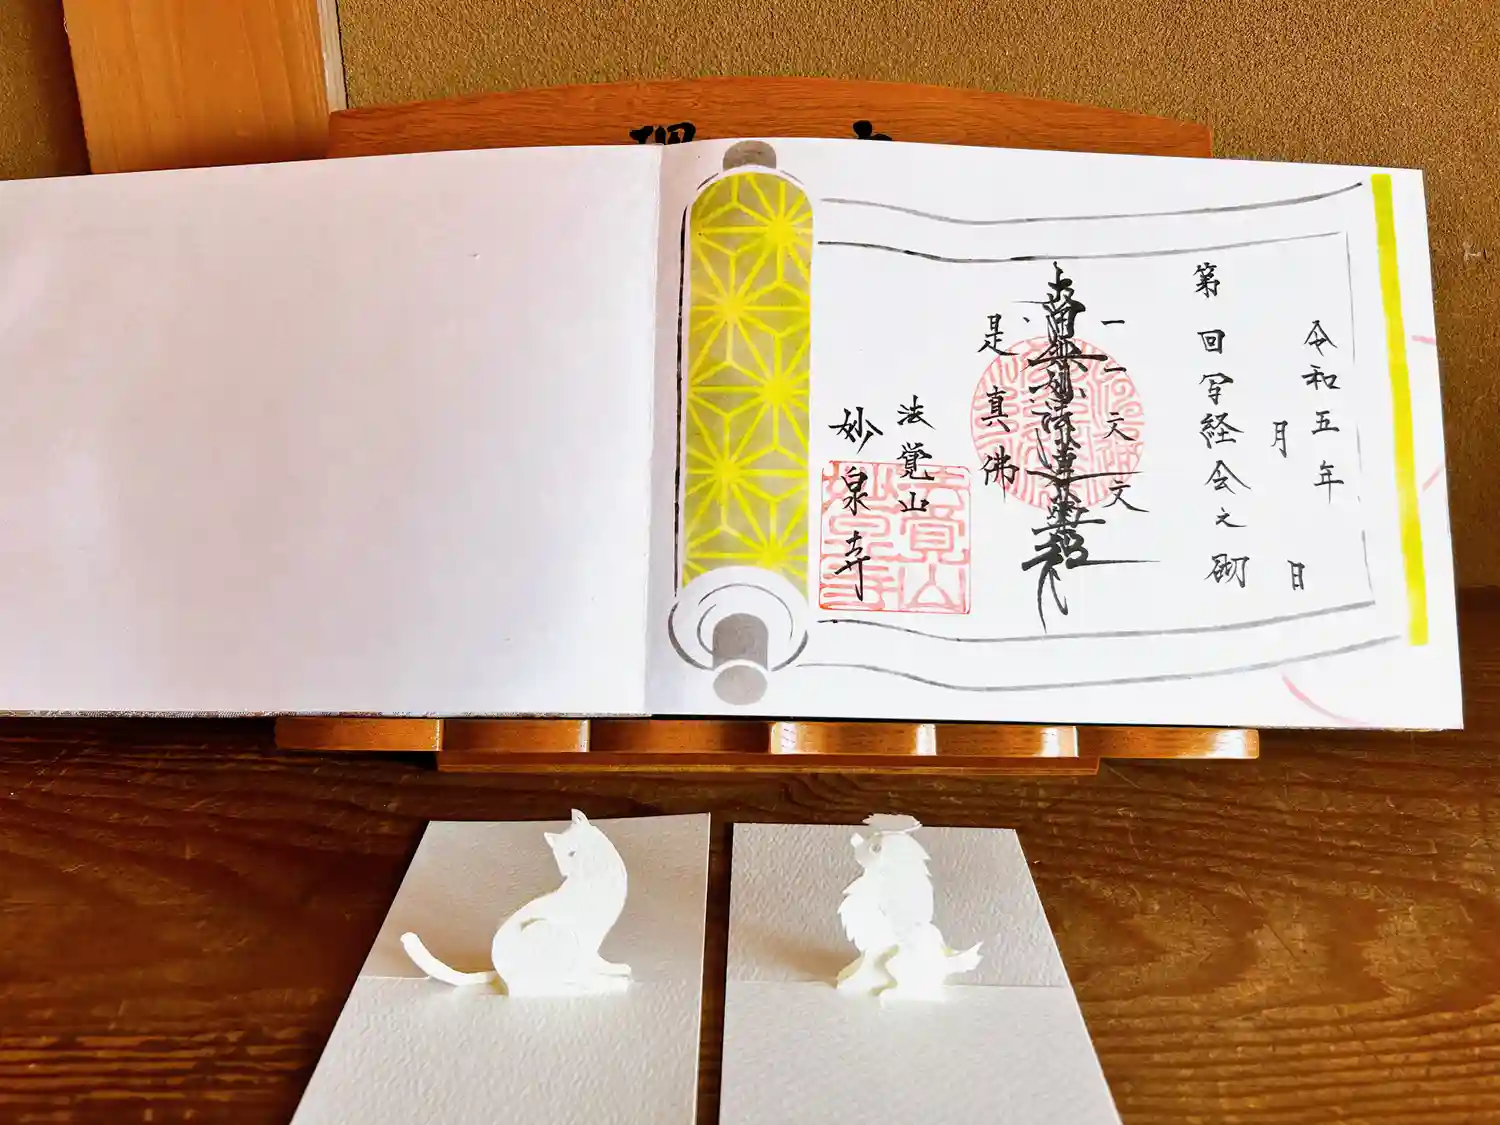 令和五年
月 日
第 回写経会之砌
一一文文
南無妙法蓮華経
是真佛
法覺山
妙泉寺
法覺山
妙泉寺